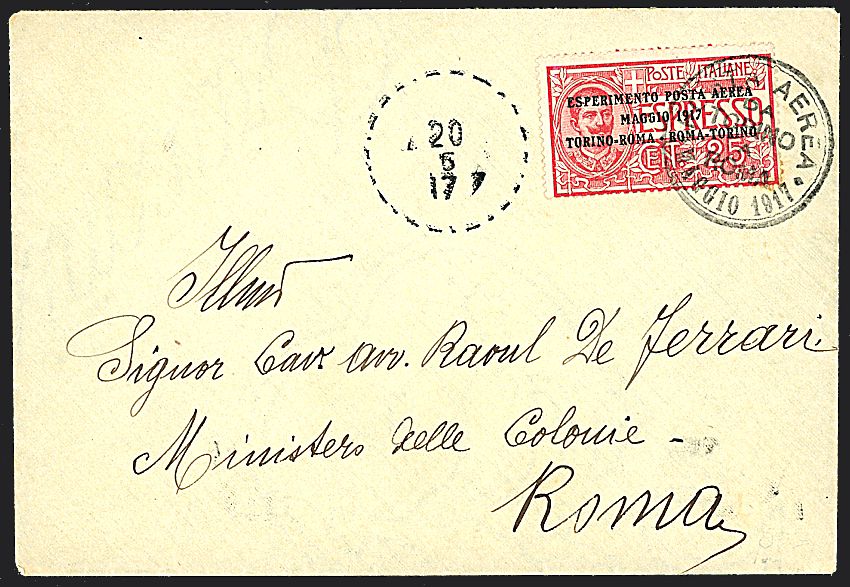 POSTE ITALIANE
ESPERIMENTO POSTA AEREA
MAGGIO 1917
TORINO-ROMA · ROMA-TORINO
ESPRESSO
CENT. 25
AEREA
MAGGIO 1917
20
5
17
Illmo
Signor Cav. avv. Raoul De Ferrari
Ministero delle Colonie -
Roma